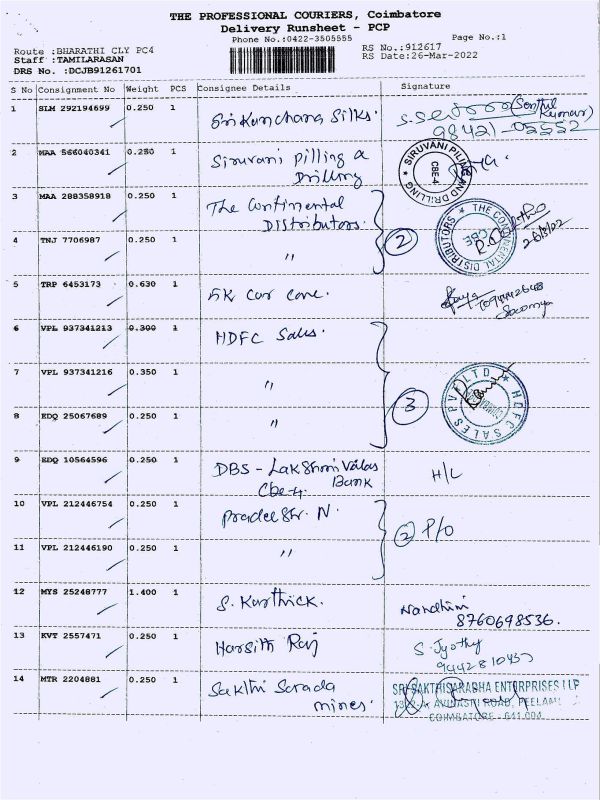 THE PROFESSIONAL COURIERS, Coimbatore
Delivery Runsheet - PCP
Phone No.:0422-3505555
Page No.:1
Route :BHARATHI CLY PC4
Staff :TAMILARASAN
DRS No. :DCJB91261701
RS No.:912617
RS Date:26-Mar-2022
S No Consignment No Weight PCS Consignee Details Signature
1 SLM 292194699 0.250 1 Sri Kanchana Silks. S. (Senthil Kumar)
98421-02552
2 MAA 566040341 0.250 1 Siruvani pilling & Drilling SIRUVANI PILING AND DRILLING CBE-4
3 MAA 288358918 0.250 1 The Continental Distributors THE CONTINENTAL DISTRIBUTORS CBE
4 TNJ 7706987 0.250 1 " 2
5 TRP 6453173 0.630 1 5K Car Care. Sowmya
6 VPL 937341213 0.300 1 HDFC Sales.
7 VPL 937341216 0.350 1 " 3 HDFC SALES PVT LTD
8 EDQ 25067689 0.250 1 "
9 EDQ 10564596 0.250 1 DBS - Lakshmi Vilas Bank Cbe-4. H/L
10 VPL 212446754 0.250 1 N. 2 P/O
11 VPL 212446190 0.250 1 "
12 MYS 25248777 1.400 1 S. Karthick. Nandhini
8760698536.
13 KVT 2557471 0.250 1 Harsith Raj S. Jyothy
14 MTR 2204881 0.250 1 Sakthi Sarada mines. SRI SAKTHISARADHA ENTERPRISES LLP
AVINASHI ROAD, PEELAMEDU
COIMBATORE - 641 004